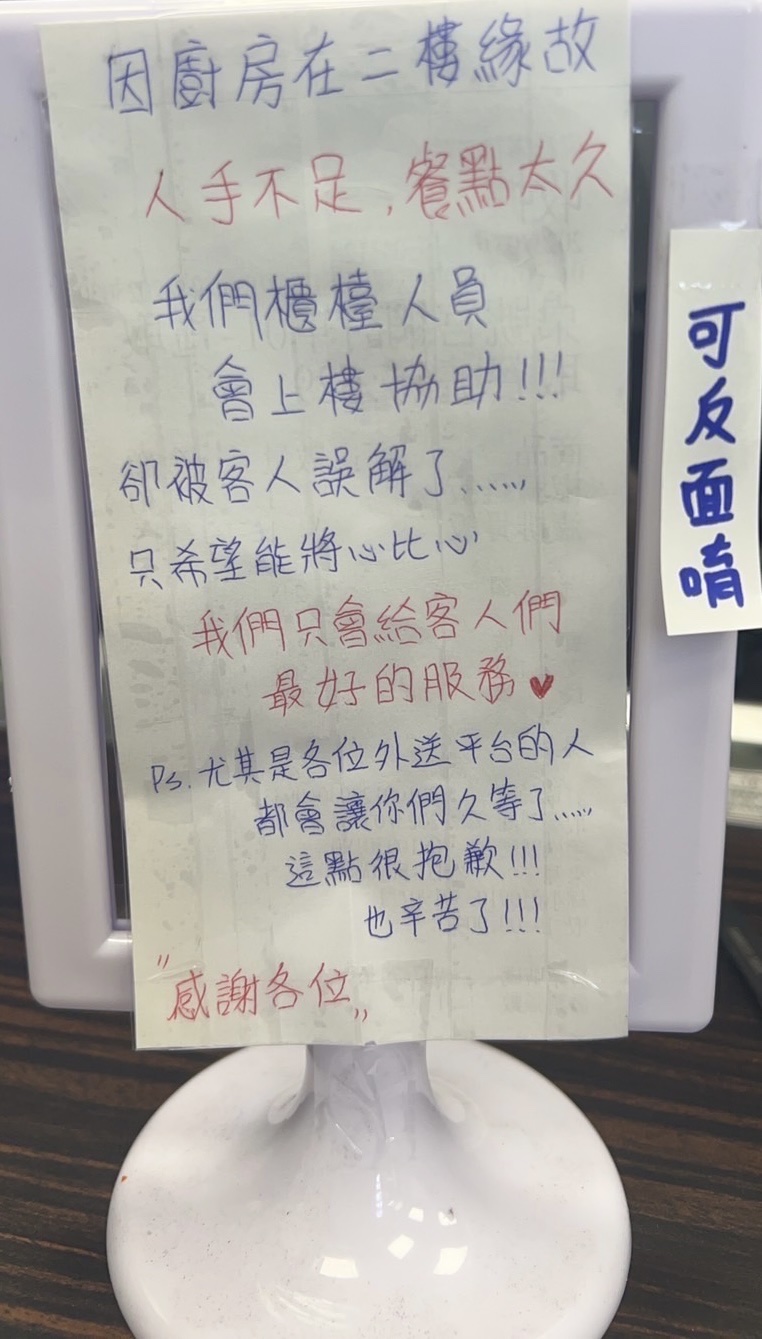 因廚房在二樓緣故
人手不足,餐點太久
我們櫃檯人員
會上樓協助!!!
卻被客人誤解了......
只希望能將心比心
我們只會給客人們
最好的服務♥
Ps.尤其是各位外送平台的人
都會讓你們久等了......
這點很抱歉!!!
也辛苦了!!!
"感謝各位"
可反面唷